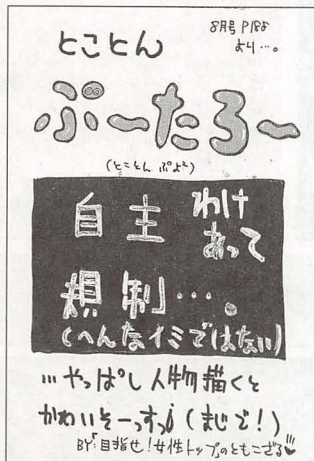 8月号 P188
より…。
とことん
ぷーたろー
(とことん ぷよ²)
自主 わけ
あって
規制…。
(へんなイミではない)
…やっぱし人物描くと
かわいそーっすっ(まじで!)
BY「目指せ!女性トップ」のともこざる